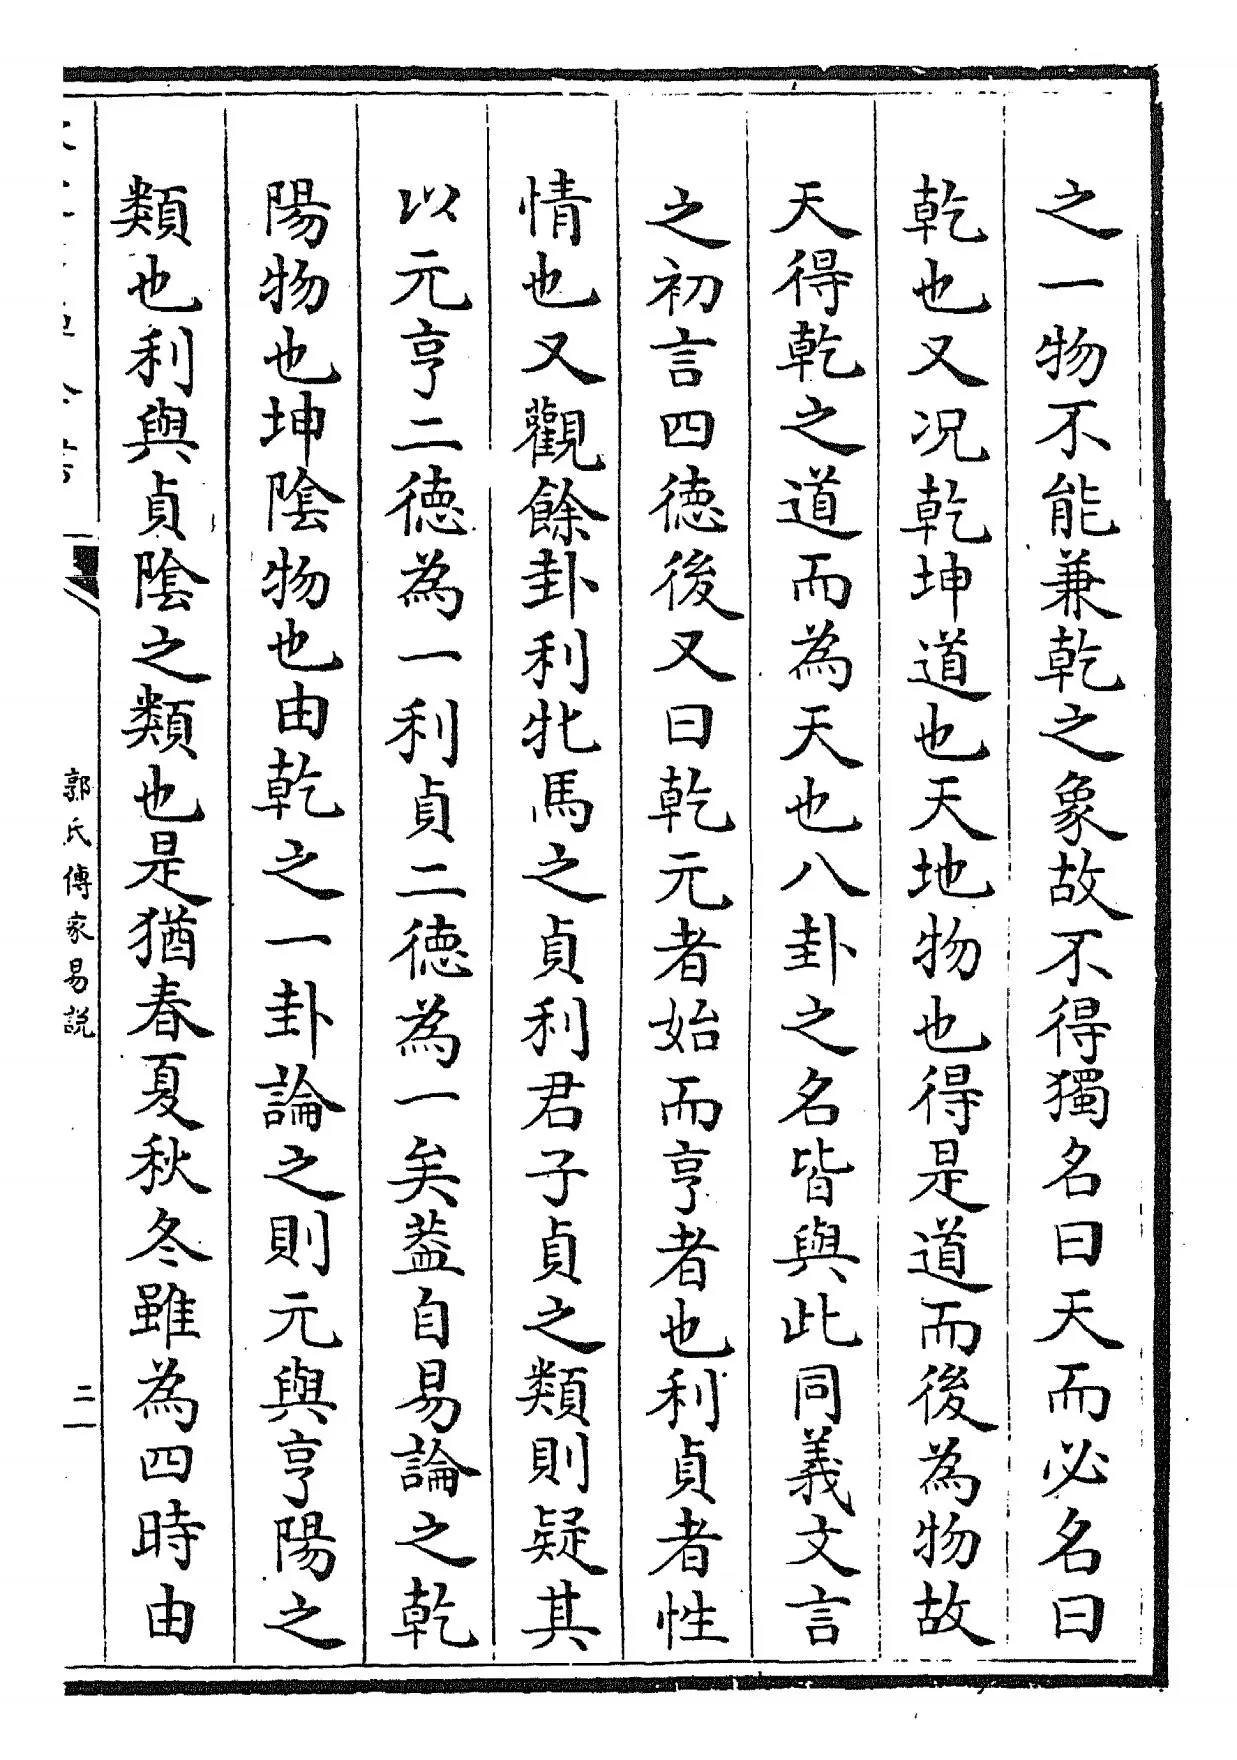 之一物不能兼乾之象故不得獨名曰天而必名曰
乾也又况乾坤道也天地物也得是道而後為物故
天得乾之道而為天也八卦之名皆與此同義文言
之初言四徳後又曰乾元者始而亨者也利貞者性
情也又觀餘卦利牝馬之貞利君子貞之類則疑其
以元亨二徳為一利貞二徳為一矣葢自易論之乾
陽物也坤陰物也由乾之一卦論之則元與亨陽之
類也利與貞陰之類也是猶春夏秋冬雖為四時由
郭氏傳家易説
二